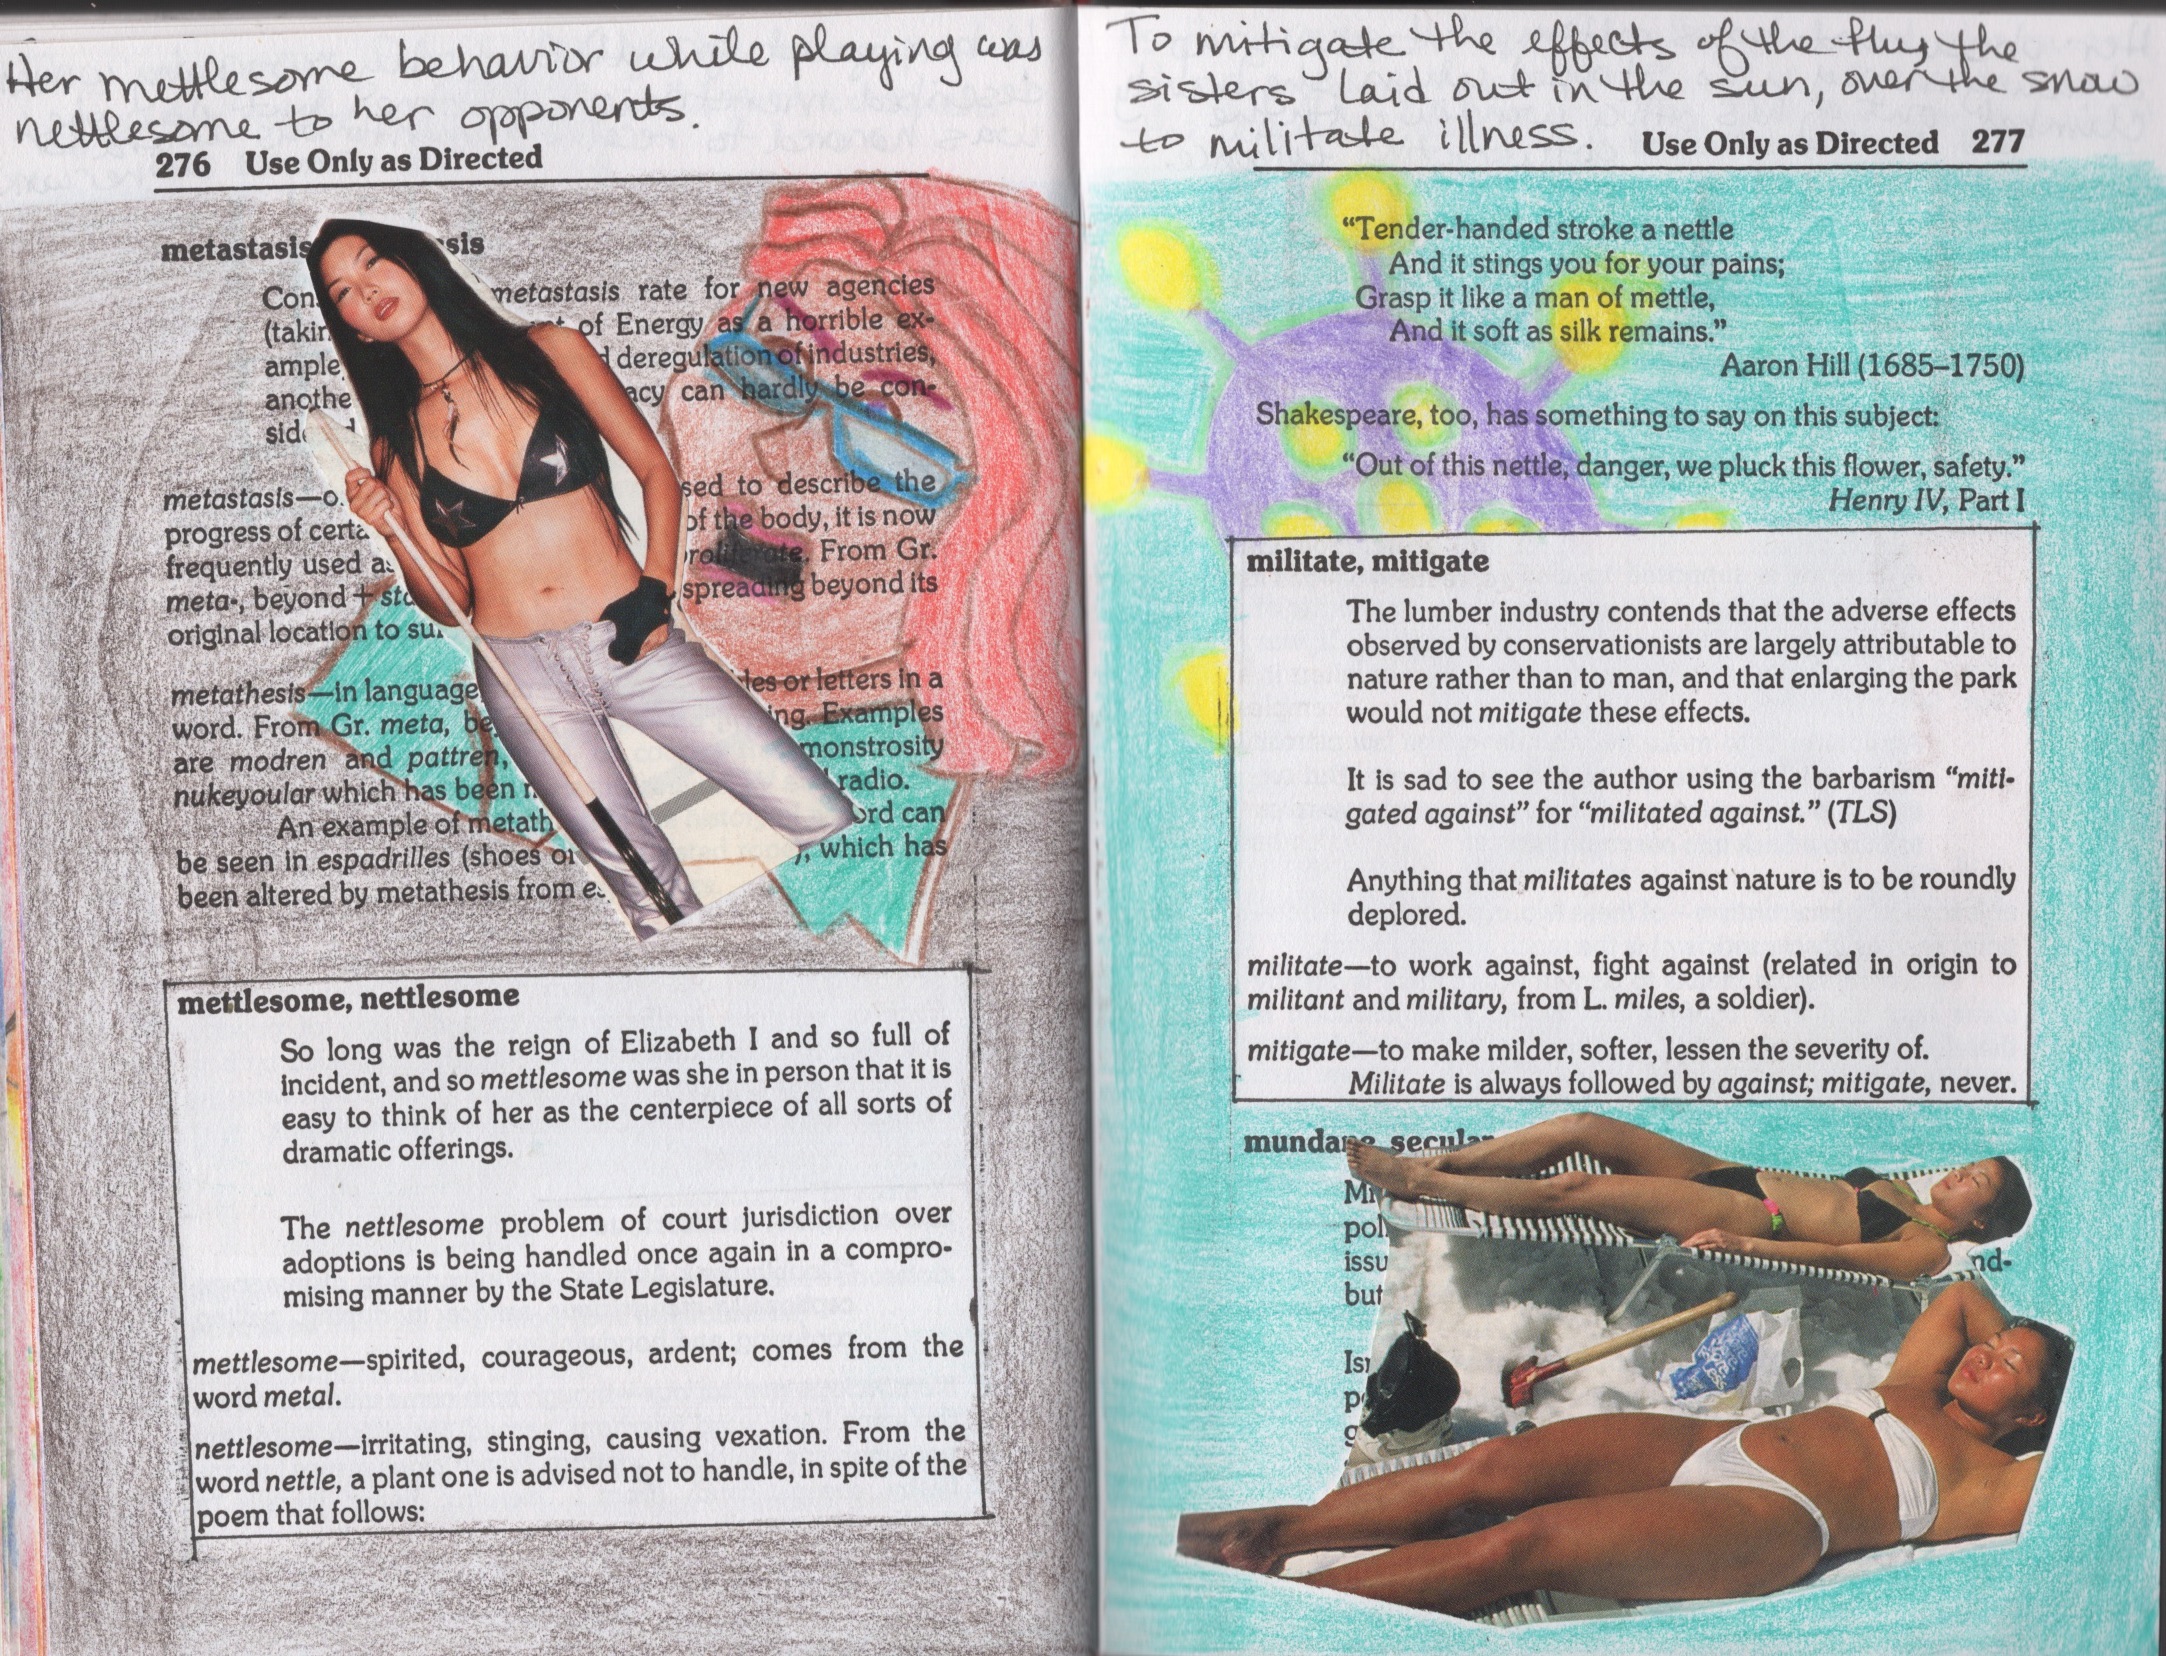 Her mettlesome behavior while playing was
nettlesome to her opponents.
276 Use Only as Directed
metastasis sis
Con metastasis rate for new agencies
(takin of Energy as a horrible ex-
ample deregulation of industries,
anothe acy can hardly be con-
metastasis—o sed to describe the
progress of certa of the body, it is now
frequently used as proliferate. From Gr.
meta-, beyond + sta spreading beyond its
original location to su
metathesis—in language les or letters in a
word. From Gr. meta, be ing. Examples
are modren and pattren, monstrosity
nukeyoular which has been radio.
An example of metath ord can
be seen in espadrilles (shoes o which has
been altered by metathesis from es
mettlesome, nettlesome
So long was the reign of Elizabeth I and so full of
incident, and so mettlesome was she in person that it is
easy to think of her as the centerpiece of all sorts of
dramatic offerings.
The nettlesome problem of court jurisdiction over
adoptions is being handled once again in a compro-
mising manner by the State Legislature.
mettlesome—spirited, courageous, ardent; comes from the
word metal.
nettlesome—irritating, stinging, causing vexation. From the
word nettle, a plant one is advised not to handle, in spite of the
poem that follows:
To mitigate the effects of the flu, the
sisters laid out in the sun, over the snow
to militate illness.
Use Only as Directed 277
“Tender-handed stroke a nettle
And it stings you for your pains;
Grasp it like a man of mettle,
And it soft as silk remains.”
Aaron Hill (1685–1750)
Shakespeare, too, has something to say on this subject:
“Out of this nettle, danger, we pluck this flower, safety.”
Henry IV, Part I
militate, mitigate
The lumber industry contends that the adverse effects
observed by conservationists are largely attributable to
nature rather than to man, and that enlarging the park
would not mitigate these effects.
It is sad to see the author using the barbarism “miti-
gated against” for “militated against.” (TLS)
Anything that militates against nature is to be roundly
deplored.
militate—to work against, fight against (related in origin to
militant and military, from L. miles, a soldier).
mitigate—to make milder, softer, lessen the severity of.
Militate is always followed by against; mitigate, never.
mundane, secular
pol
issu nd-
but